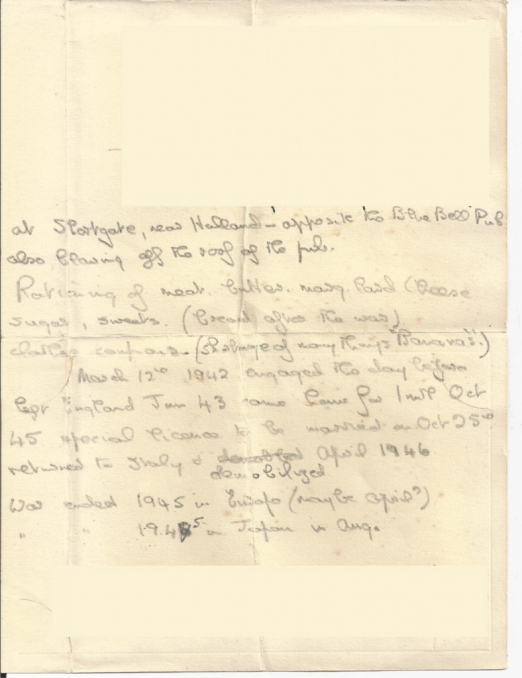 at Shortgate, near Halland - opposite the Blue Bell Pub
also blowing off the roof of the pub.
Rationing of meat, butter, marg, lard (cheese
sugar, sweets. (bread after the war)
clothes coupons. (shortage of many things "Bananas".)
March 12th 1942 engaged the day before
left England Jan 43 came home for 1 mth Oct
45 special licence to be married on Oct 25th
returned to Italy & April 1946
demobilized
War ended 1945 in Europe (maybe april?)
" " 1945 in Japan in Aug.